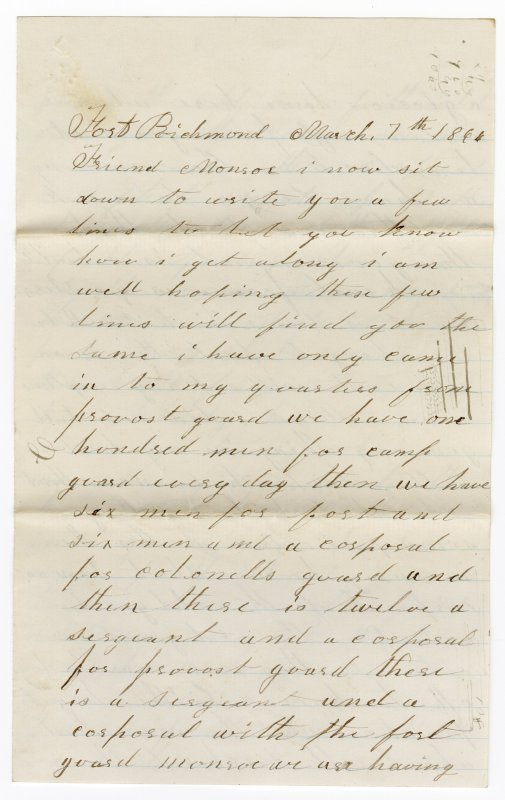 Fort Richmond March. 7th 1864
Friend Monroe i now sit
down to write you a few
lines to let you know
how i get along i am
well hoping these few
lines will find you the
same i have only came
in to my quarters from
provost guard we have one
hundred men for camp
guard every day then we have
six men for fort and
six men and a corporal
for colonells guard and
then there is twelve a
sergeant and a corporal
for provost guard there
is a sergeant and a
corporal with the fort
guard monroe we are having